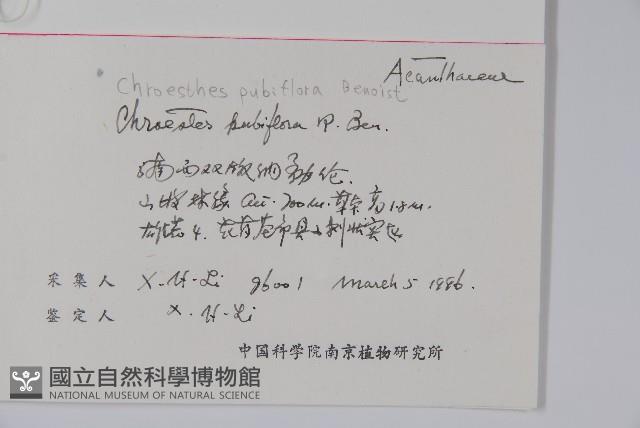 Acanthaceae
Chroesthes pubiflora Benoist
Chroestes pubiflora R. Ben.
滇西双版纳勐仑
山坡林缘 alt. 700 m. 草高 1.5 m.
雄蕊 4.
采集人 X.-H-Li 96001 March 5 1996.
鉴定人 X. H-Li
中国科学院南京植物研究所
國立自然科學博物館
NATIONAL MUSEUM OF NATURAL SCIENCE